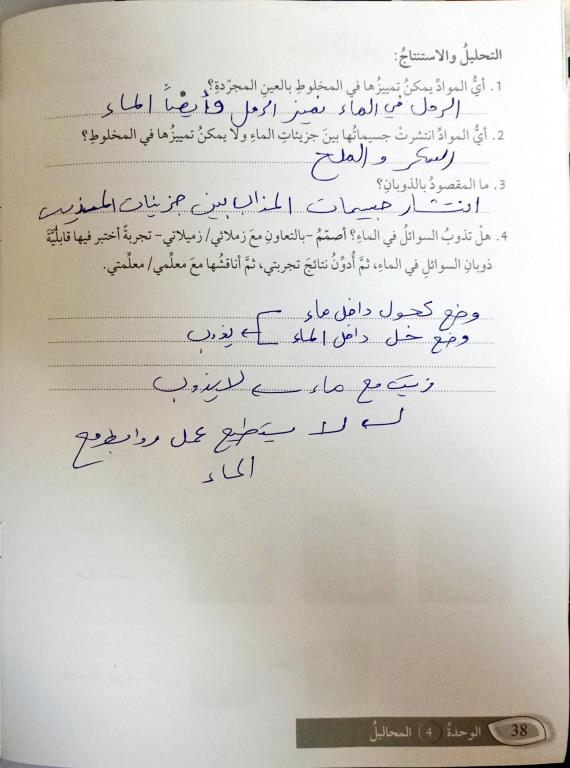 التحليلُ والاستنتاجُ:
1. أيُّ الموادِّ يمكنُ تمييزُها في المخلوطِ بالعينِ المجرّدةِ؟
الرمل في الماء نميز الرمل وأيضاً الماء
2. أيُّ الموادِّ انتشرتْ جسيماتُها بينَ جزيئاتِ الماءِ ولا يمكنُ تمييزُها في المخلوطِ؟
السكر و الملح
3. ما المقصودُ بالذوبانِ؟
انتشار جسيمات المذاب بين جزيئات المذيب
4. هلْ تذوبُ السوائلُ في الماءِ؟ أصمّمُ –بالتعاونِ معَ زملائي/ زميلاتي– تجربةً أختبر فيها قابليَّةَ
ذوبانِ السوائلِ في الماءِ، ثمَّ أُدوِّنُ نتائجَ تجربتي، ثمَّ أناقشُها معَ معلِّمي/ معلِّمتي.
وضع كحول داخل ماء
وضع خل داخل الماء يذوب
زيت مع ماء ← لا يذوب
لا يستطيع عمل روابط مع
الماء
38 الوحدةُ 4 المحاليلُ